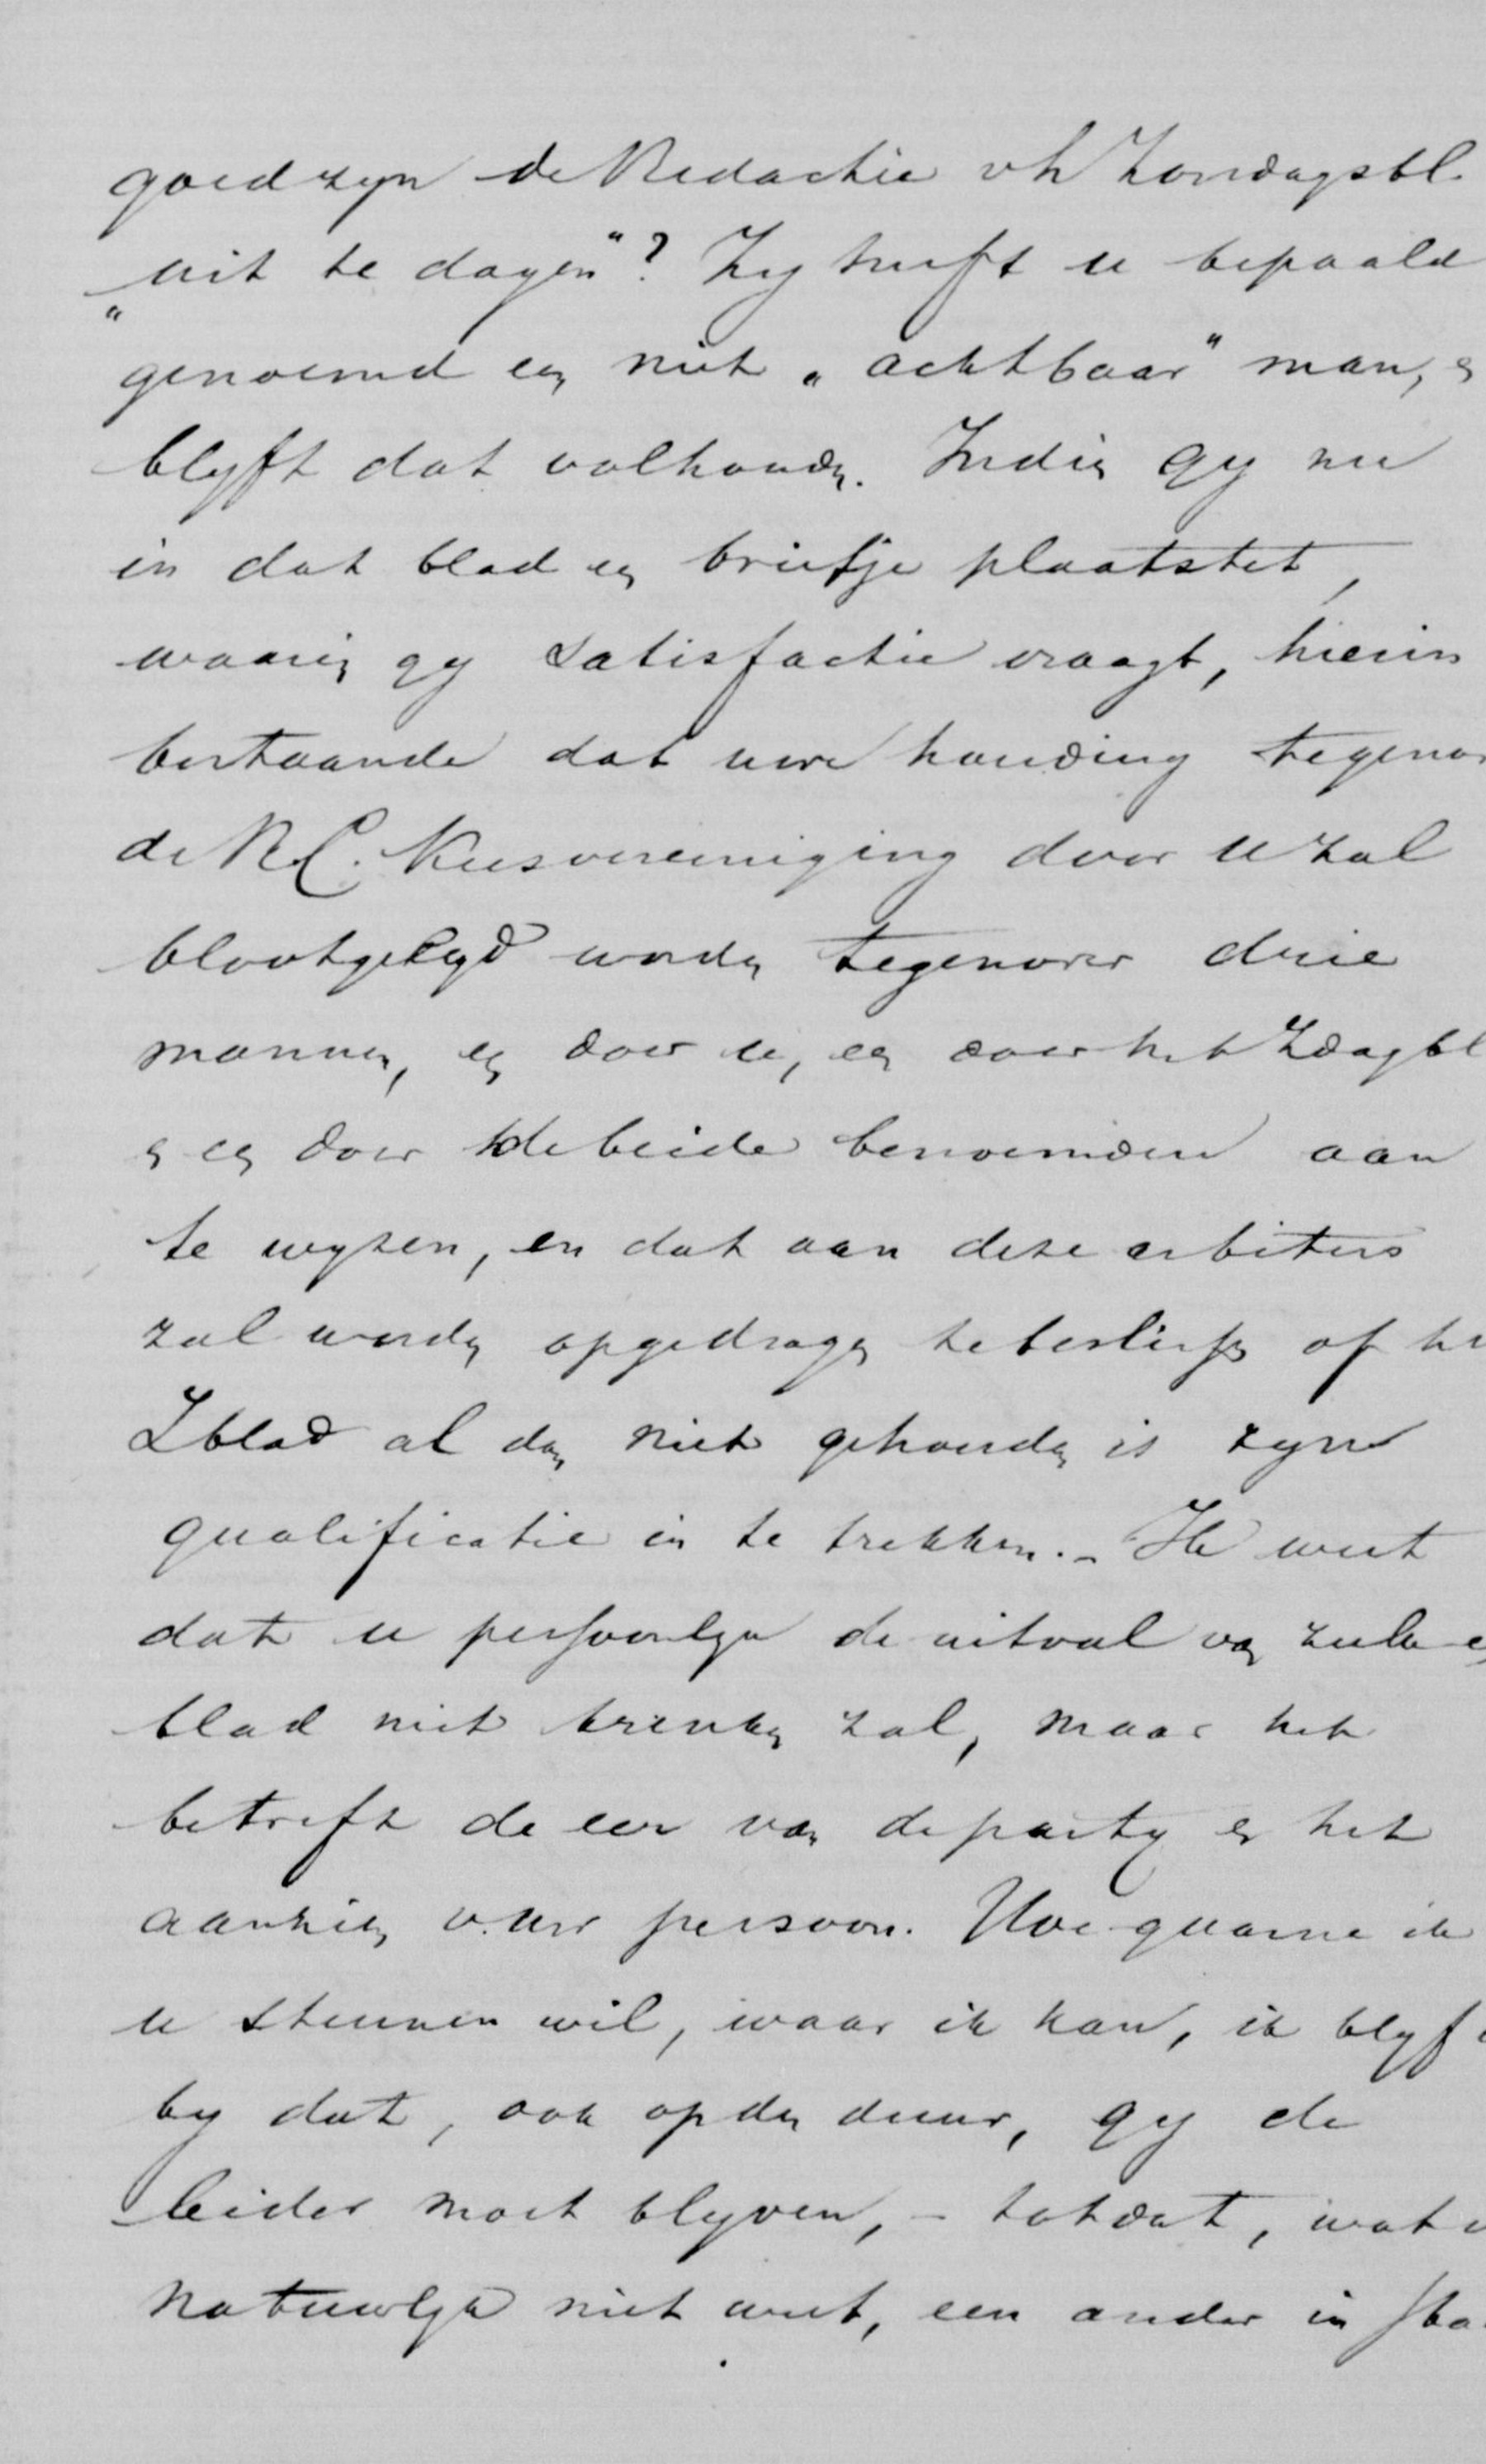 goed zyn de Redactie vh Zondagsbl.
„uit te dagen"? Zy heeft u bepaald
genoemd een niet „achtbaar" man, en
blyft dat volhouden. Indien gy nu
in dat blad een briefje plaatstet,
waarin gy satisfactie vraagt, hierin
bestaande dat uwe houding tegenov
de R.C. Kiesvereeniging door u zal
blootgelegd worden tegenover drie
mannen, een door u, een door het Zdagbl
en een door de beide benoemden aan
te wyzen, en dat aan deze arbiters
zal worden opgedragen te beslissen of he
Zblad al dan niet gehouden is zyne
qualificatie in te trekken. – Ik weet
dat u persoonlyk de uitval van zulk een
blad niet krenken zal, maar het
betreft de eer van de party en het
aanzien v. uw persoon. Hoe gaarne ik
u steunen wil, waar ik kan, ik blyf
by dat, ook op den duur, gy de
leider moet blyven, – totdat, wat u
natuurlyk niet weet, een ander in sta